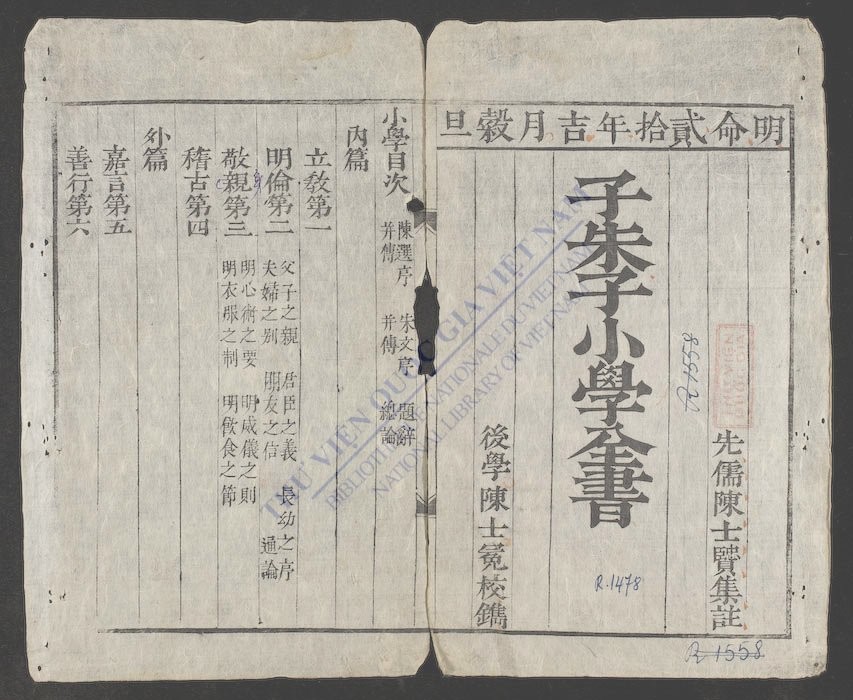 明命貳拾年吉月穀旦
先儒陳士賢集註
子朱子小學全書
後學陳士冕校鐫
小學目次 陳選序并傳 朱文序并傳 題辭 總論
內篇
立教第一
明倫第二 父子之親 君臣之義 長幼之序 夫婦之别 朋友之信 通論
敬親第三 明心術之要 明威儀之則 明衣服之制 明飲食之節
身
稽古第四
外篇
嘉言第五
善行第六
R.1558
R.1478
R 1558
THƯ VIỆN QUỐC GIA VIỆT NAM
BIBLIOTHÈQUE NATIONALE DU VIETNAM
NATIONAL LIBRARY OF VIETNAM